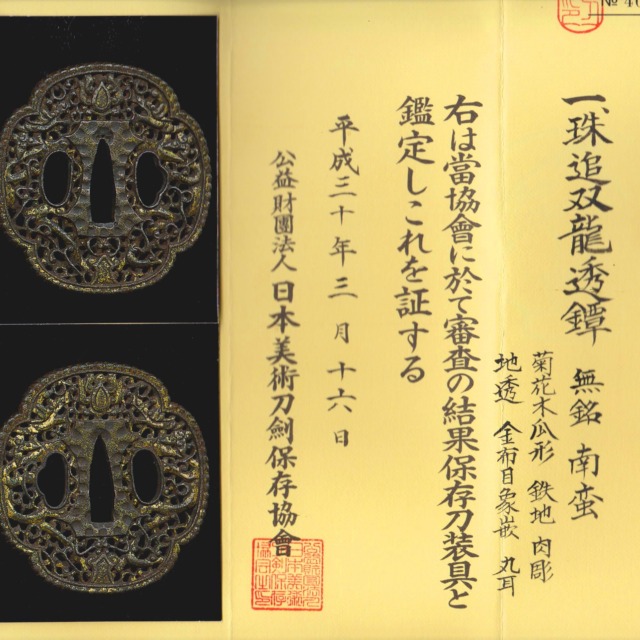 № 40
一、珠追双龍透鐔 無銘 南蛮
菊花木瓜形 鉄地 肉彫
地透 金布目象嵌 丸耳
右は當協會に於て審査の結果保存刀装具と
鑑定しこれを証する
平成三十年三月十六日
公益財團法人日本美術刀劍保存協會